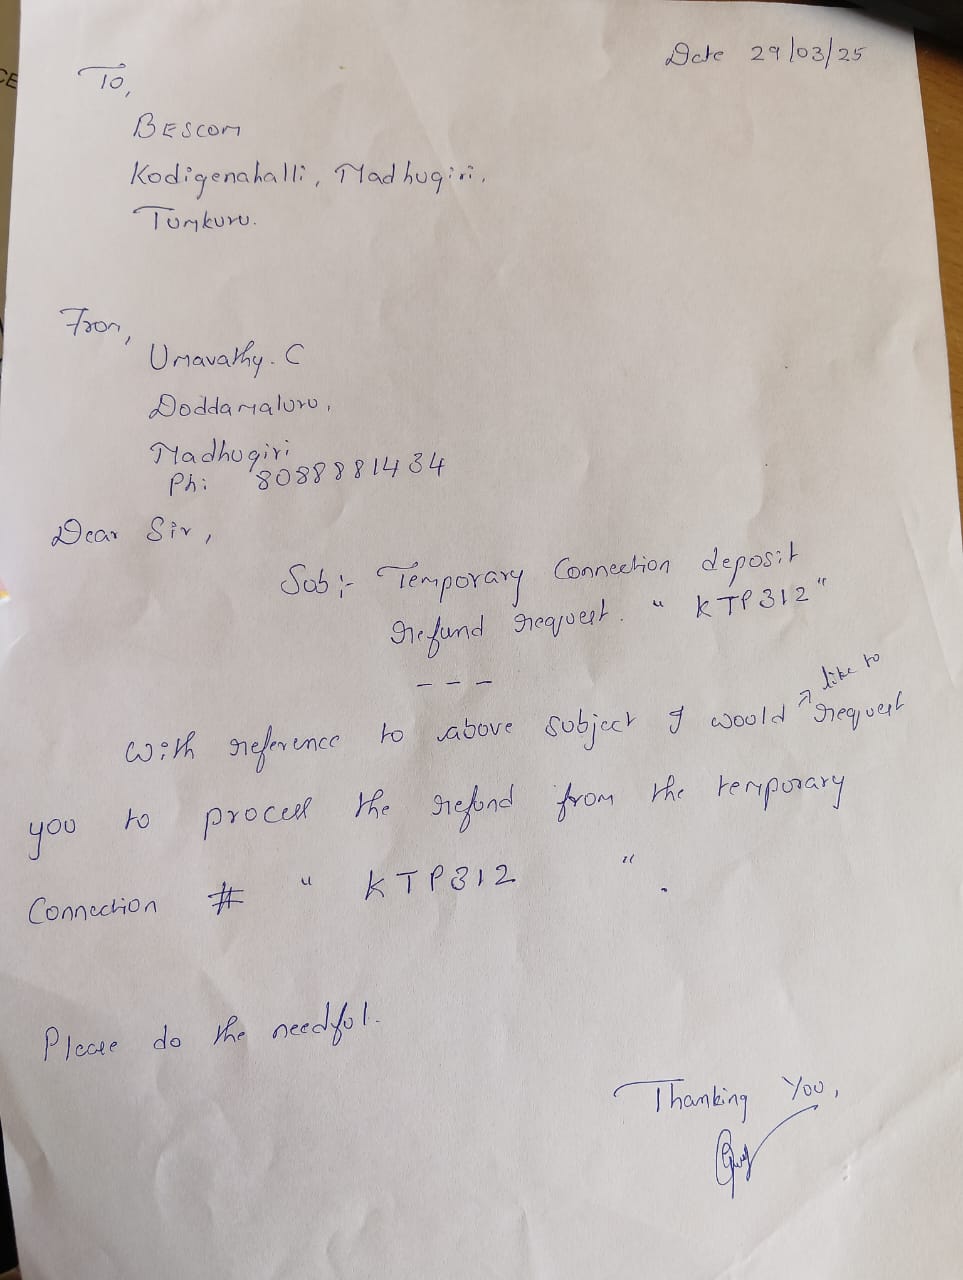 Date 29/03/25
To,
BESCOM
Kodigenahalli, Madhugiri.
Tumkuru.
From,
Umavathy. C
Doddamaluru,
Madhugiri
Ph: 8088881434
Dear Sir,
Sub:- Temporary Connection deposit
refund request. "KTP312"
---
like to
With reference to above subject I would ^ request
you to process the refund from the temporary
Connection # "KTP312".
Please do the needful.
Thanking You,